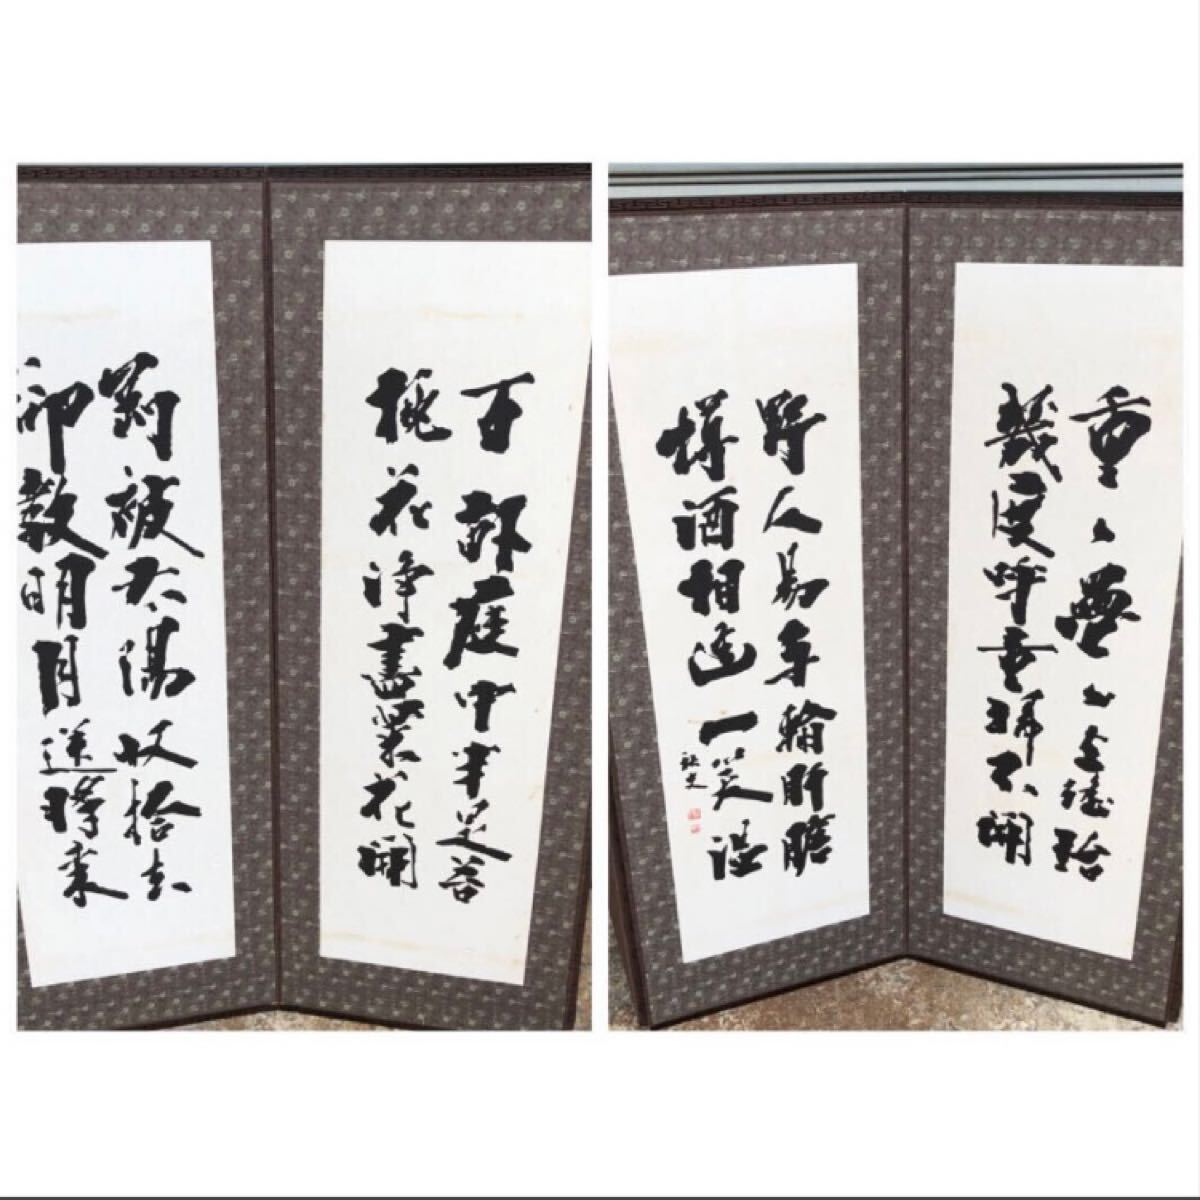 百畝庭中半是苔
桃花浄盡菜花開
剛被太陽收拾去
却教明月送將来
重〻疊〻上瑶台
幾度呼童掃不開
野人易与輸肝膽
樽酒相逢一笑温